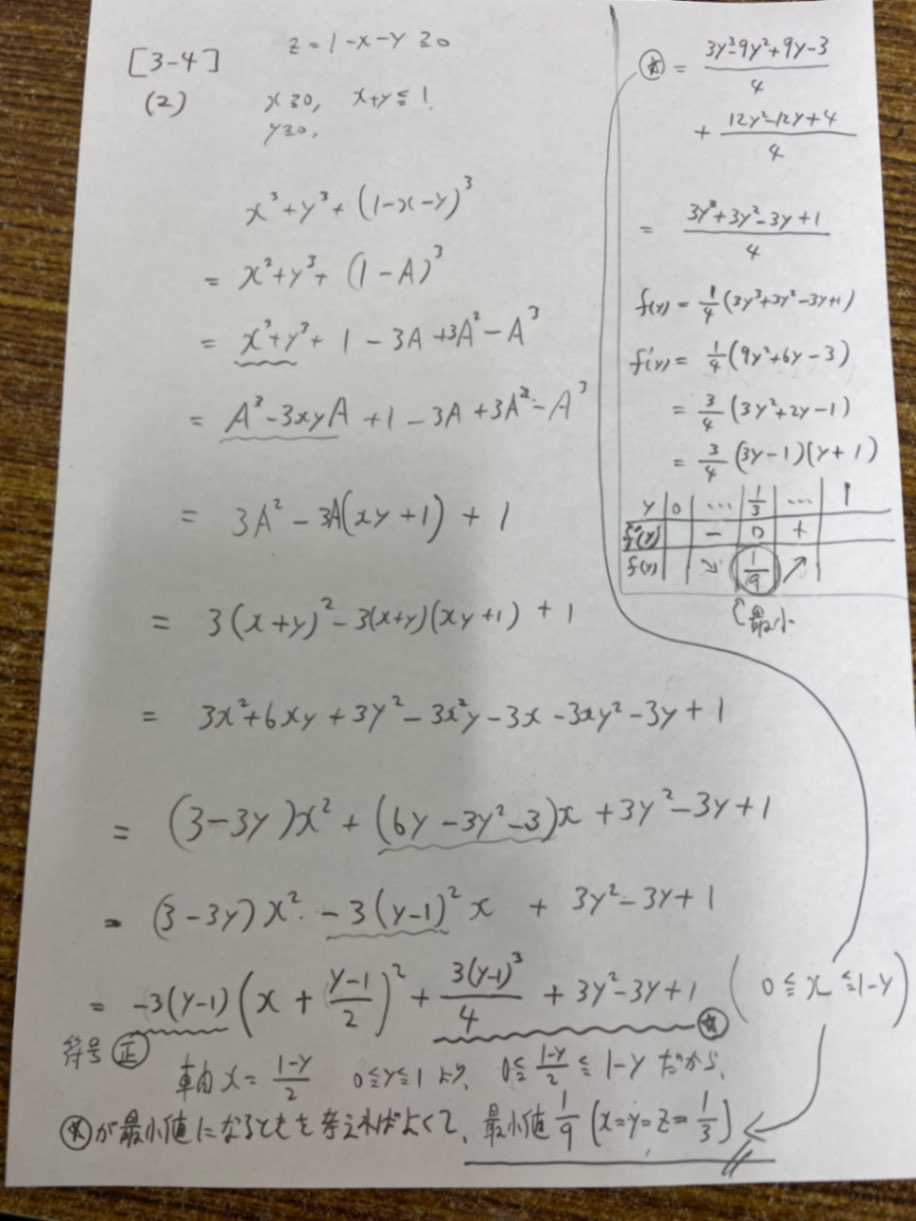 [3-4]
(2)
z = 1-x-y ≧0
x≧0, x+y≦1.
y≧0,
x³+y³+(1-x-y)³
= x²+y³+ (1-A)³
= x³+y³+ 1-3A+3A²-A³
= A³-3xyA+1-3A+3A²-A³
= 3A²-3A(xy+1)+1
= 3(x+y)²-3(x+y)(xy+1)+1
= 3x²+6xy+3y²-3x²y-3x-3xy²-3y+1
= (3-3y)x²+(6y-3y²-3)x+3y²-3y+1
= (3-3y)x²-3(y-1)²x + 3y²-3y+1
= -3(y-1)(x+\frac{y-1}{2})²+\frac{3(y-1)³}{4}+3y²-3y+1 ☆ (0≦x≦1-y)
符号 正
軸x=\frac{1-y}{2} 0≦y≦1 より、 0≦\frac{1-y}{2}≦1-y だから、
☆が最小値になるときを考えればよくて、最小値\frac{1}{9}(x=y=z=\frac{1}{3})
☆ = \frac{3y³-9y²+9y-3}{4}
+ \frac{12y²-12y+4}{4}
= \frac{3y³+3y²-3y+1}{4}
f(y) = \frac{1}{4}(3y³+3y²-3y+1)
f'(y) = \frac{1}{4}(9y²+6y-3)
= \frac{3}{4}(3y²+2y-1)
= \frac{3}{4}(3y-1)(y+1)
y | 0 | … | \frac{1}{3} | … | 1
f'(y) | | - | 0 | +
f(y) | | ↘ | \frac{1}{9} | ↗
最小